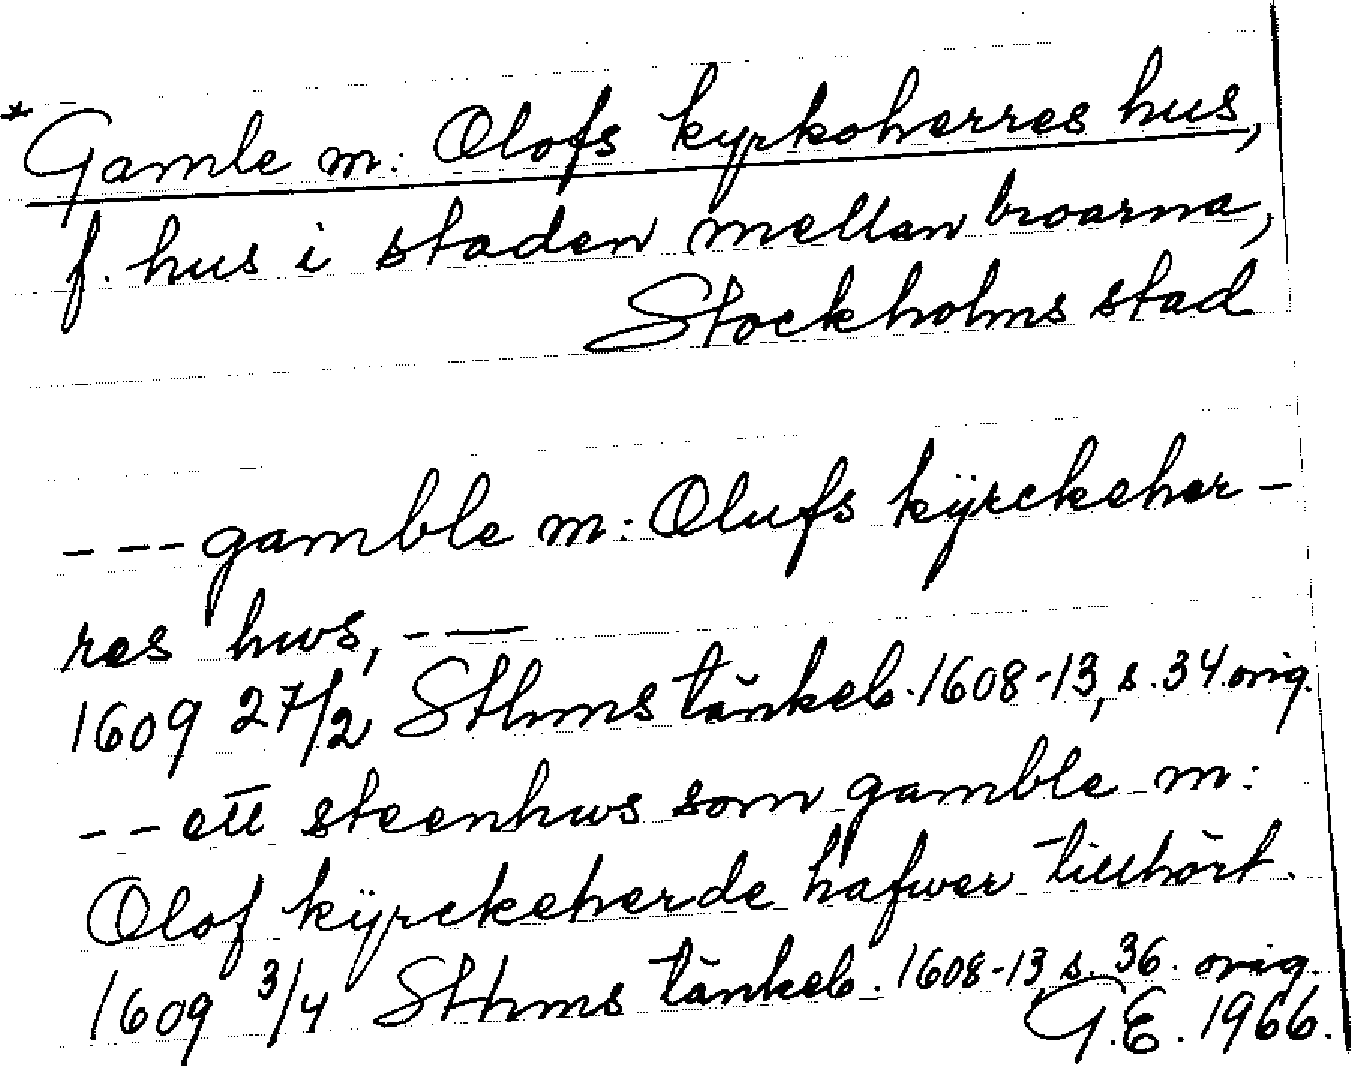 * Gamle m: Olofs kyrkoherres hus,
f. hus i staden mellan broarna,
Stockholms stad
- - - gamble m: Olufs kÿrckeher-
res hws, - —
1609 27/2 Sthms tänkeb. 1608-13, s. 34 orig.
- - ett steenhws som gamble m:
Olof kÿrckeherde hafwer tillhört.
1609 3/4 Sthms tänkeb. 1608-13, s. 36. orig.
G.E. 1966.